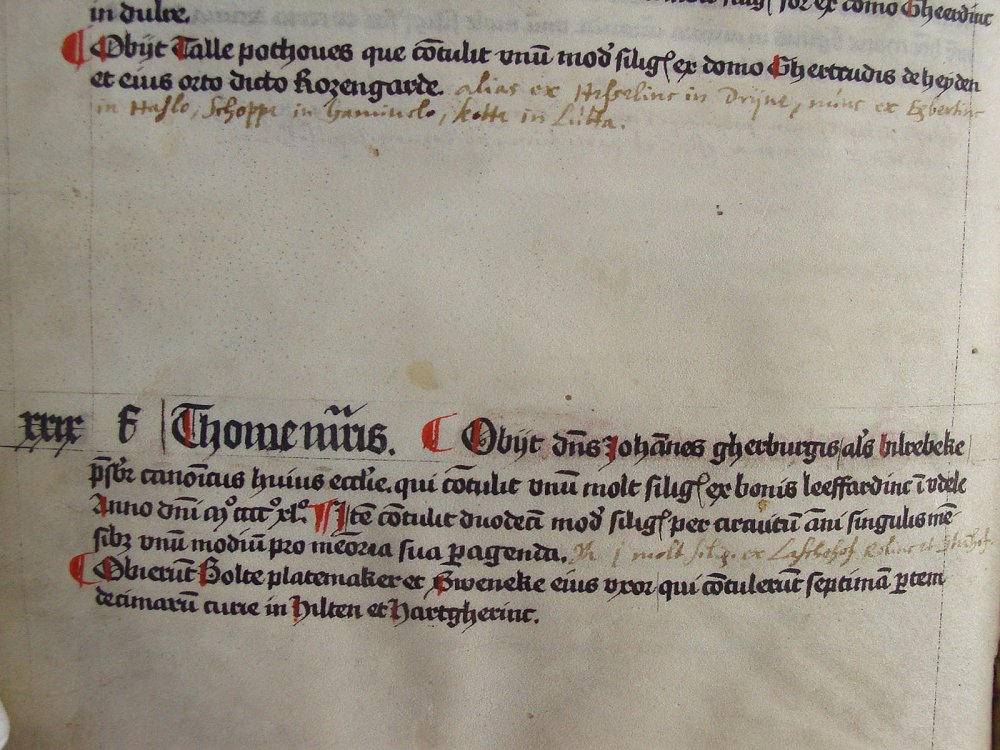 in dulre.
Obijt Talle pothoues que cōtulit vnū mod̄ siliḡ ex domo Ghertrudis de heyden
et eius orto dicto Rozengarde. alias ex Hesselinc in Drÿne, nunc ex Egbertinc
in Haslo, Schoppe in haminclo, kotte in Lutta.
xxix f Thome mr̄is. Obijt dn̄s Johānes gherburgis als̄ bilrebeke
p̄sbr canoīcus huius eccl̄ie. qui cōtulit vnū molt siliḡ ex bonis leeffardinc ī vdele
Anno dn̄i mͦ cccͨ xlͦ. Itē cōtulit duodecī mod̄ siliḡ per circuitū āni singulis mē
sibꝫ vnū modiū pro meōria sua ꝑagenda. j molt silig. ex
Obierūt Bolte platemaker et Sweneke eius vxor qui cōtulerūt septimā ꝑtem
decimarū curie in Hilten et Hartgherinc.